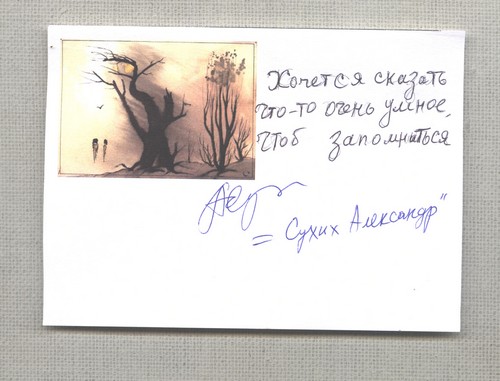 Хочется сказать
что-то очень умное,
чтоб запомниться
= Сухих Александр"